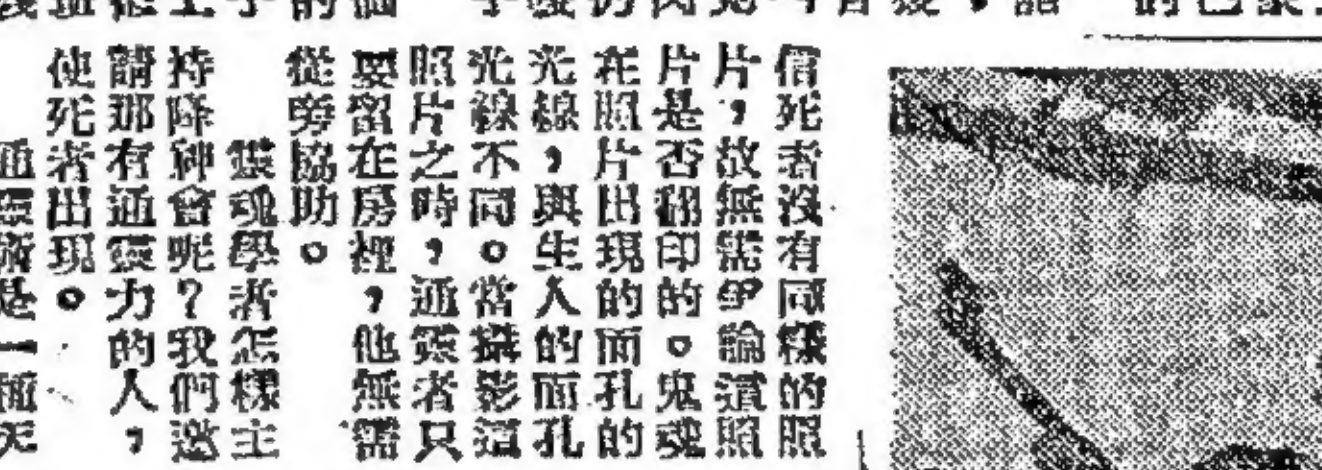 僧死者沒有同樣的照
片，故無需爭論這照
片是否翻印的。鬼魂
在照片出現的面孔的
光線，與生人的面孔
光線不同。當攝影這
照片之時，通靈者只
要留在房裡，他無需
從旁協助。
靈魂學者怎樣主
持降神會呢？我們邀
請那有通靈力的人，
使死者出現。
通靈術是一種天